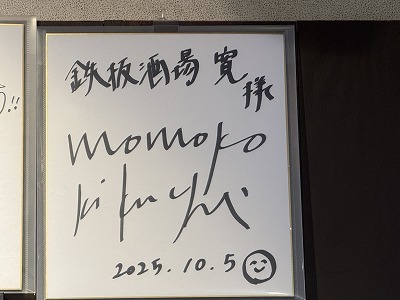 鉄板酒場 寛様
momoko
kikuchi
2025.10.5